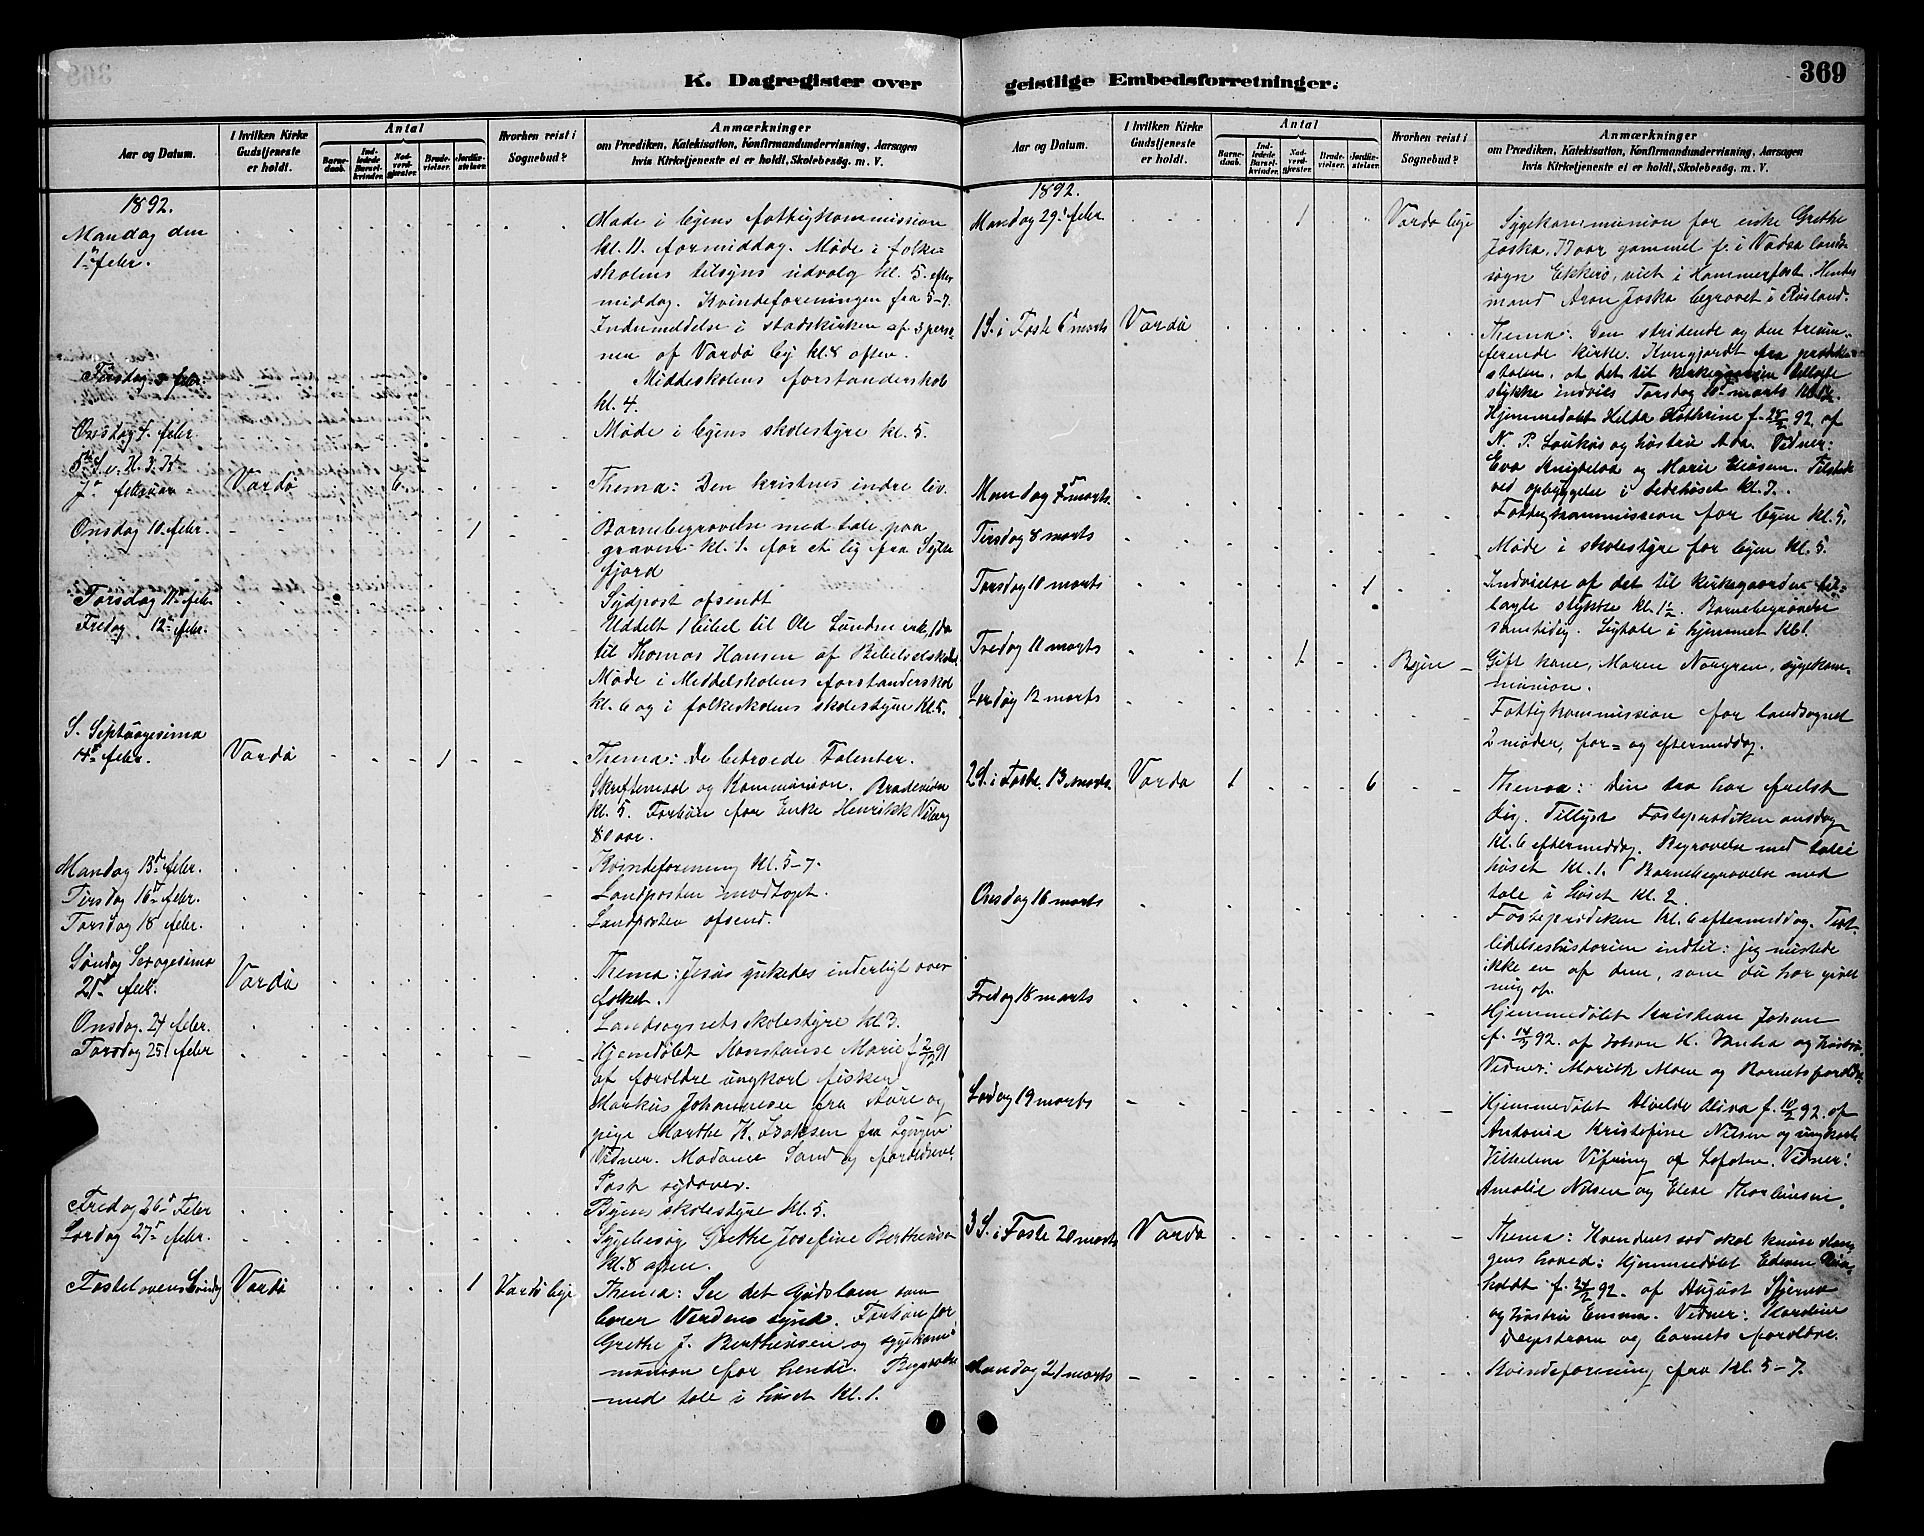 K. Dagregister over
Aar og Datum.
I hvilken Kirke
Gudstjeneste
er holdt.
Antal
Barne-
daab.
Ind-
ledede
Barsel-
kvinder.
Nad-
verd-
gjæster.
Brude-
vielser.
Jordfæ-
stelser.
Hvorhen reist i
Sognebud?
Anmærkninger
om Prædiken, Katekisation, Konfirmandundervisning, Aarsagen
hvis Kirketjeneste ei er holdt, Skolebesøg. m. V.
1892.
Mandag den
1ste febr.
Møde i byens fattigkommission
kl. 11. formiddag. Møde i folke-
skolens tilsyns udvalg kl. 5. efter
middag. Kvindeforeningen fra 5-7.
Indmeldelse i statskirken af 3 perso-
ner af Vardø by kl. 8 aften.
Tirsdag febr.
Middelskolens forstanderskab
kl. 4.
Onsdag 4. febr.
Møde i byens skolestyre kl. 5.
5te S. e. H. 3. K
7de februar Vardø 6
Thema: Den kristnes indre liv.
Onsdag 10. febr. 1
Barnebegravelse med tale paa
graven kl. 1. for et lig fra Sylte
fjord
Torsdag 11te febr.
Sydpost afsendt
Fredag 12te febr.
Uddelt 1 bibel til Ole
til Thomas Hansen af Bibelselskabet
Møde i Middelskolens forstanderskab
kl. 6 og i folkeskolens skolestyre kl. 5.
S. Septuagesima
14de febr. Vardø 1
Thema: De betroede Talenter.
Skriftemaal og Kommunion. Brudevielse
kl. 5. Forbøn for Enke Henrikk
80 aar.
Mandag 15de febr.
Kvindeforening kl. 5-7.
Tirsdag 16de febr.
Landposten modtaget.
Torsdag 18 febr.
Landposten afsend.
Søndag Sexagesima
21de febr. Vardø
Thema: Jesus ynkedes inderligt over
folket.
Onsdag. 24 febr.
Landsognets skolestyre kl. 3.
Torsdag 25 febr
Hjemdøbt Konstanse Marie f. 2/12 91
af forældre ungkarl fisker
Markus Johannesen fra Støre og
pige Marthe K. Isaksen fra Lyngen
Vidner. Madame Sand og forældrene.
Post sydover.
Fredag 26de Febr
Byens skolestyre kl. 5.
Lørdag 27de febr.
Sygebesøg Grethe Josefine Berthinsen
kl. 8 aften.
Fastelavens Søndag Vardø 1 Vardø by
Thema: Se det Gudslam som
bærer Verdens synd. Forbøn for
Grethe J. Berthinsen og sygekom-
munion for hende. Begravelse
med tale i huset kl. 1.
geistlige Embedsforretninger.
369
Aar og Datum.
I hvilken Kirke
Gudstjeneste
er holdt.
Antal
Barne-
daab.
Ind-
ledede
Barsel-
kvinder.
Nad-
verd-
gjæster.
Brude-
vielser.
Jordfæ-
stelser.
Hvorhen reist i
Sognebud?
Anmærkninger
om Prædiken, Katekisation, Konfirmandundervisning, Aarsagen
hvis Kirketjeneste ei er holdt, Skolebesøg. m. V.
1892.
Mandag 29de febr. 1 Vardø by
Sygekommunion for enke Grethe
Joska, 77 aar gammel f. i Vadsø land-
sogn Ekkerø, viet i Hammerfest. Hendes
mand Aron Joska begravet i Rusland.
1 S. i Faste 6te marts Vardø
Thema: Den stridende og den trium-
ferende kirke. Kungjordt fra prædike-
stolen, at det til kirkegaarden tillagte
stykke indvies Torsdag 10de marts
Hjemmedøbt Hilda Kathrine f. 92. af
N. P. Loukas og hustru Ada. Vidner:
Eva og Marie Eliasen. Tilstede
ved opbyggelse i bedehuset kl. 7.
Mandag 7de marts.
Fattigkommission for byen kl. 5.
Tirsdag 8 marts
Møde i skolestyre for byen kl. 5.
Torsdag 10 marts 1
Indvielse af det til kirkegaarden til-
lagte stykke kl. 1½. Barnebegravelse
samtidig. Ligtale i hjemmet kl. 1.
Fredag 11 marts 1 Byen
Gift kone, Maren Norgren, sygekom-
munion.
Lørdag 12 marts
Fattigkommission for landsognet
2 møder, for= og eftermiddag.
2 S. i Faste 13 marts. Vardø 1 6
Thema: Din tro har frelst
dig. Tillyst Fasteprædiken onsdag
kl. 6 eftermiddag. Begravelse med tale i
huset kl. 1. Barnebegravelse med
tale i huset kl. 2.
Onsdag 16 marts
Fasteprædiken kl. 6 eftermiddag. Text
lidelseshistorien indtil: jeg mistede
ikke en af dem, som du har givet
mig af.
Fredag 18 marts
Hjemmedøbt Kristian Johan
f. 92. af Johan K. og hustru.
Vidner: Marith Mam og Barnets forældre
Lørdag 19 marts
Hjemmedøbt Alvilde Oliva f. 10/2 92. af
Antonie Kristofine Nilsen og ungkarl
Vilhelm af Lofoten. Vidner:
Amalie Nilsen og Elise
3 S. i Faste 20 marts Vardø
Thema: Kvindens sæd skal knuse slan-
gens hoved. Hjemmedøbt Edvin
f. 92. af August
og hustru Emma. Vidner:
og barnets forældre.
Mandag 21 marts
Kvindeforening fra kl. 5-7.